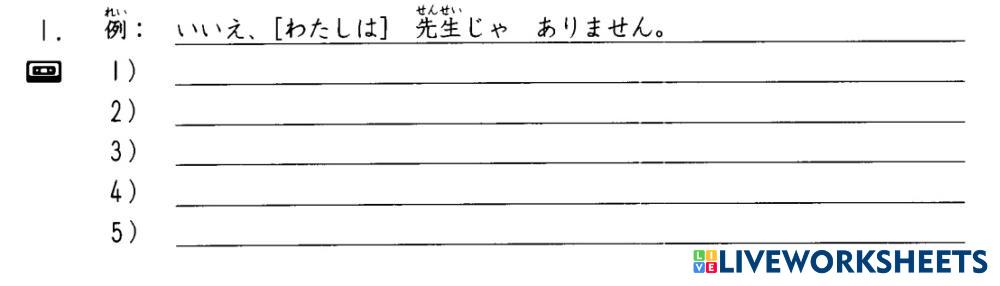 1. 例: いいえ、[わたしは] 先生じゃ ありません。
1)
2)
3)
4)
5)
LIVEWORKSHEETS